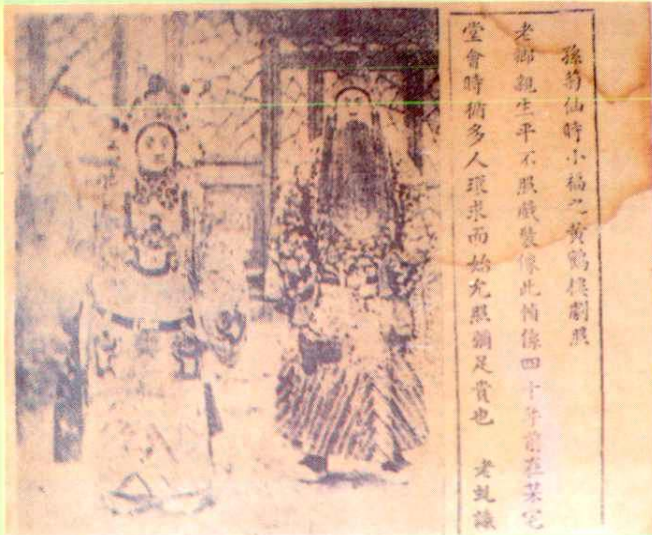 孫菊仙時小福之黃鶴樓劇照
老鄉親生平不照戲裝像此幀係四十年前在某宅
堂會時猶多人環求而始允照彌足貴也　老虬識